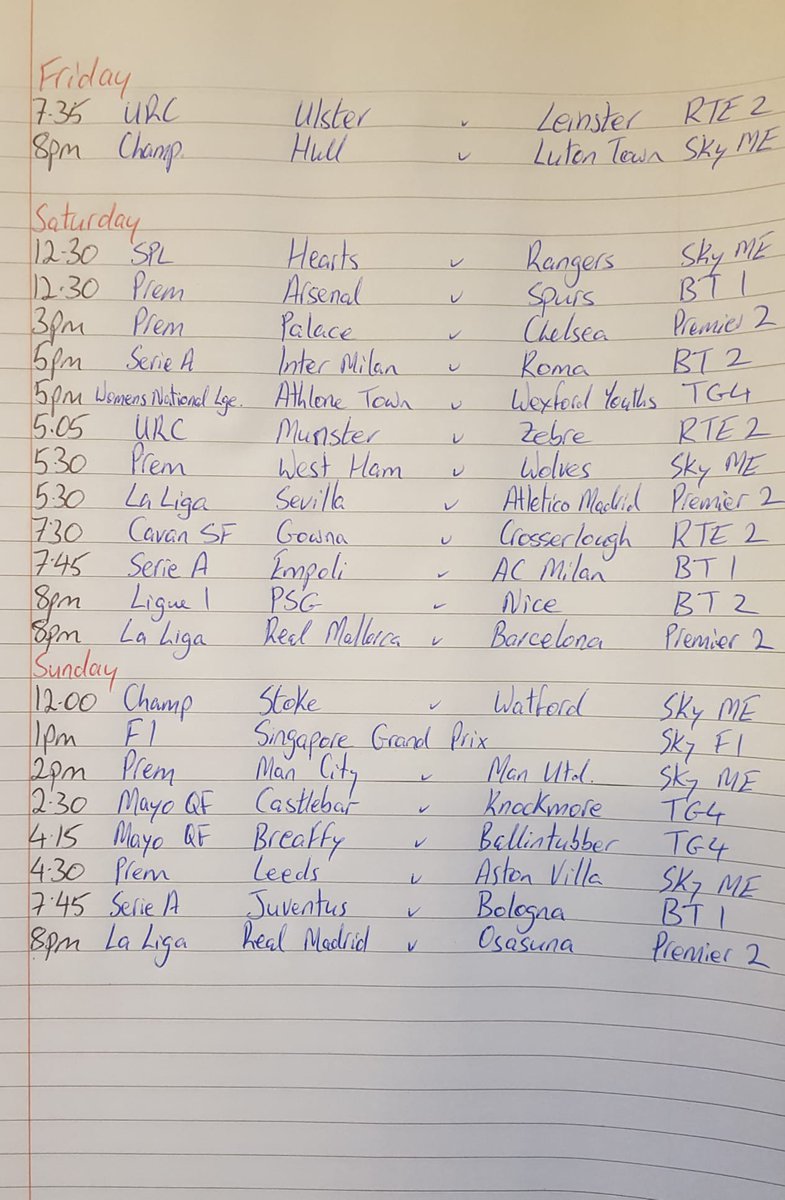 Friday
7.35 URC Ulster v Leinster RTE 2
8pm Champ. Hull v Luton Town Sky ME
Saturday
12.30 SPL Hearts v Rangers Sky ME
12.30 Prem Arsenal v Spurs BT 1
3pm Prem Palace v Chelsea Premier 2
5pm Serie A Inter Milan v Roma BT 2
5pm Womens National Lge. Athlone Town v Wexford Youths TG4
5.05 URC Munster v Zebre RTE 2
5.30 Prem West Ham v Wolves Sky ME
5.30 La Liga Sevilla v Atletico Madrid Premier 2
7.30 Cavan SF Gowna v Crosserlough RTE 2
7.45 Serie A Empoli v AC Milan BT 1
8pm Ligue 1 PSG v Nice BT 2
8pm La Liga Real Mallorca v Barcelona Premier 2
Sunday
12.00 Champ Stoke v Watford Sky ME
1pm F1 Singapore Grand Prix Sky F1
2pm Prem Man City v Man Utd. Sky ME
2.30 Mayo QF Castlebar v Knockmore TG4
4.15 Mayo QF Breaffy v Ballintubber TG4
4.30 Prem Leeds v Aston Villa Sky ME
7.45 Serie A Juventus v Bologna BT 1
8pm La Liga Real Madrid v Osasuna Premier 2